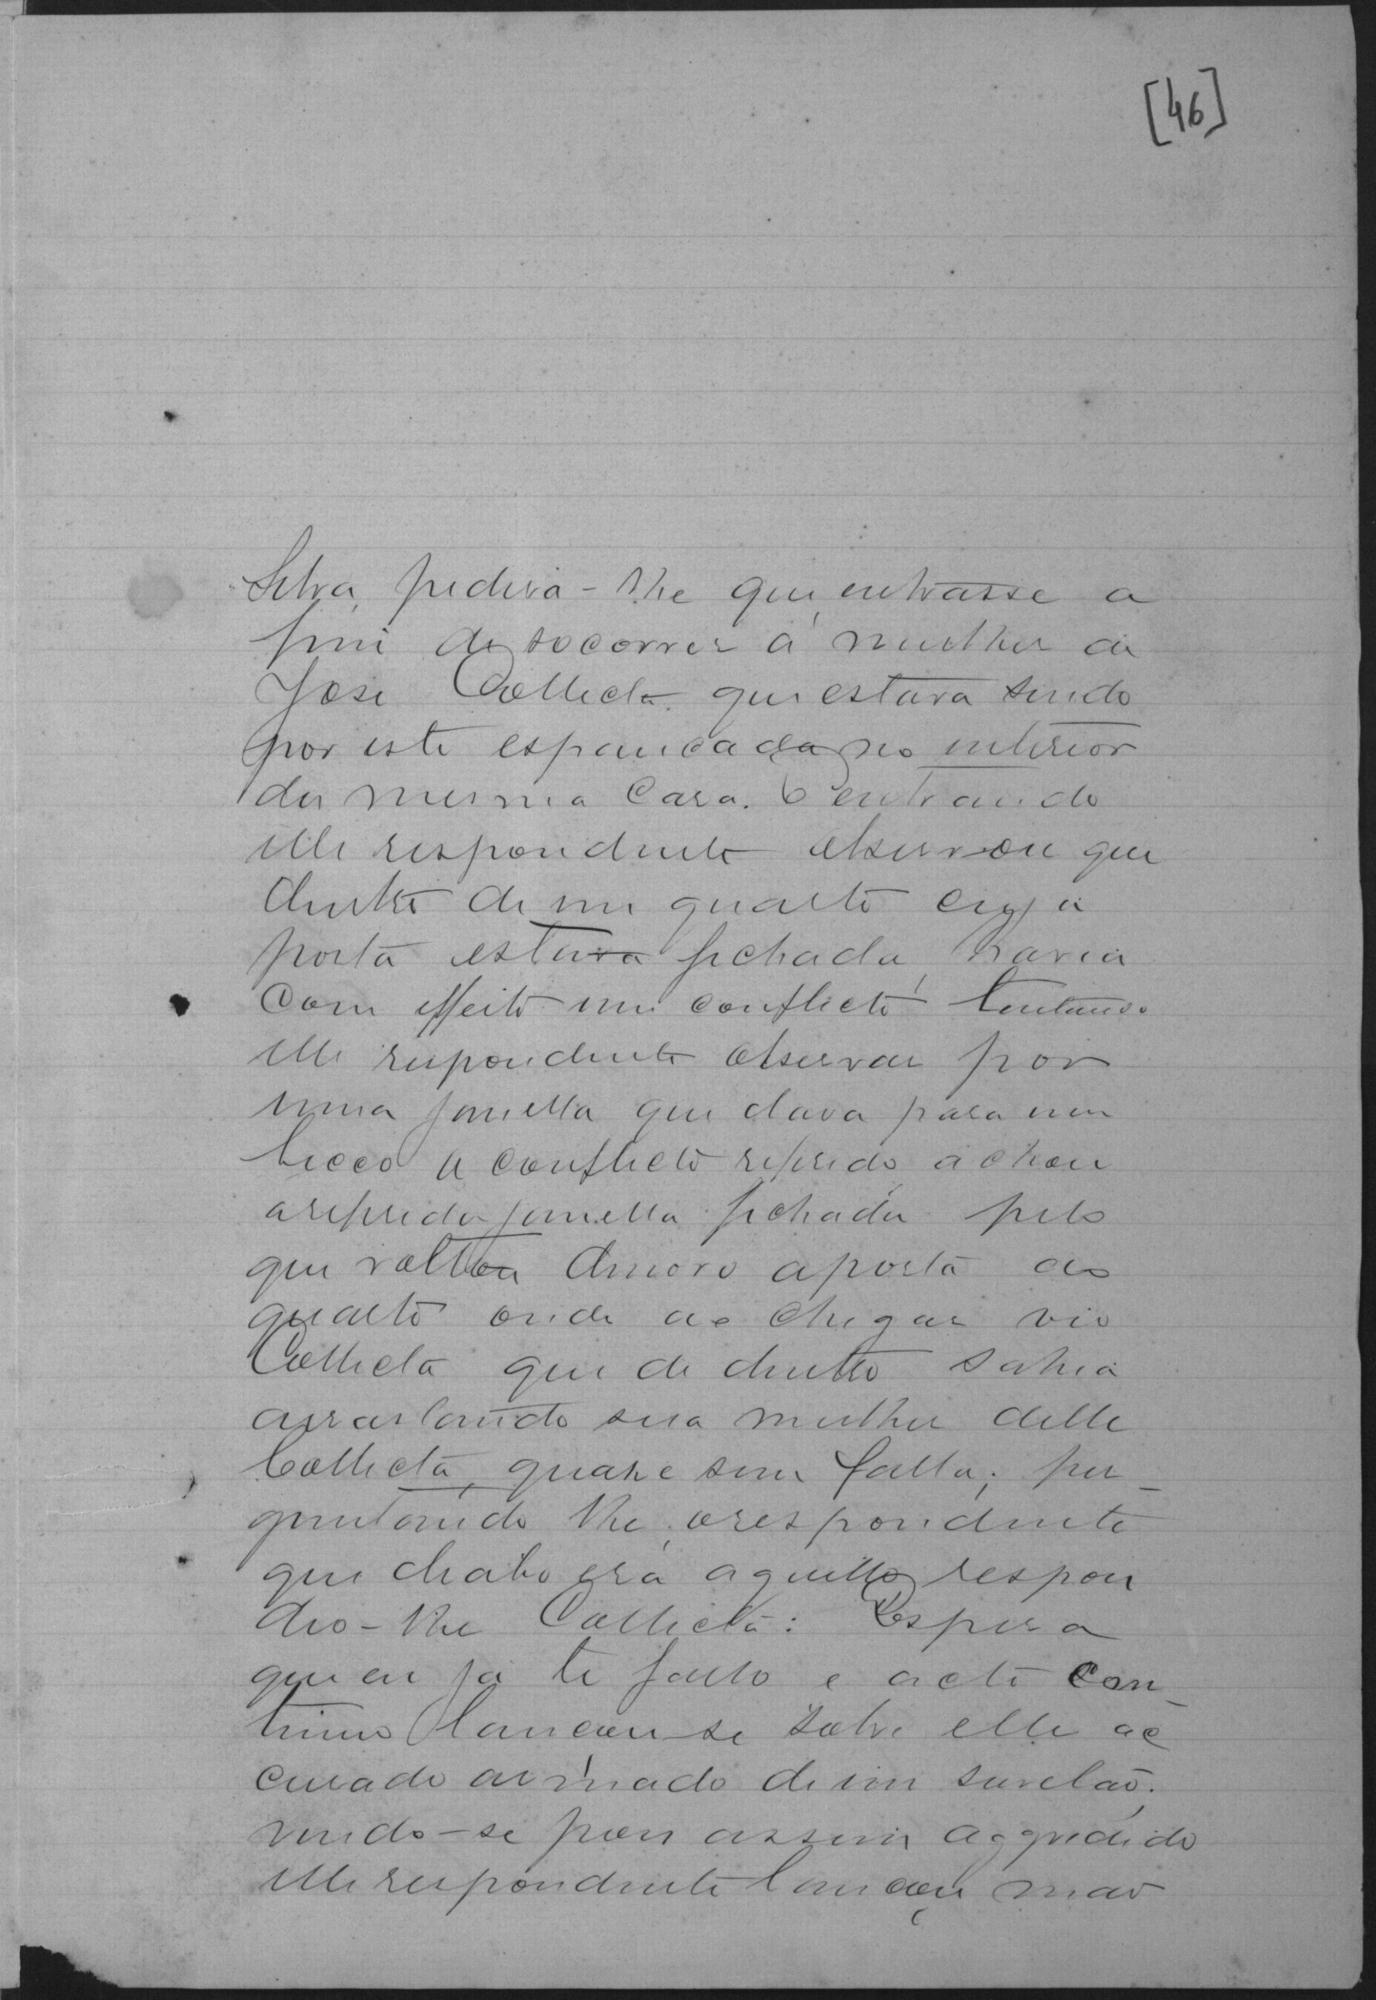 [46]
Silva, pedira-lhe que entrasse a
fim de soccorrer á mulher de
José Collecta que estava sendo
por este espancada no interior
da mesma casa. E entrando
elle respondente observou que
dentro de um quarto cuja
porta estava fechada, havia
com effeito um conflicto; tentando
elle respondente observar por
uma janella que dava para um
becco o conflicto referido, achou
a referida janella fechada pelo
que voltou denovo a porta do
quarto onde ao chegar vio
Collecta que de dentro sahia
arrastando sua mulher delle
Collecta, quase sem falla; per_
guntando lhe, o respondente
que diabo era aquillo respon
deo-lhe Collecta: Espera
que eu já te fallo e acto con_
tinuo lançou-se sobre elle ac
cusado armado de um sovelão;
vendo-se pois assim aggredido
elle respondente lançou mão